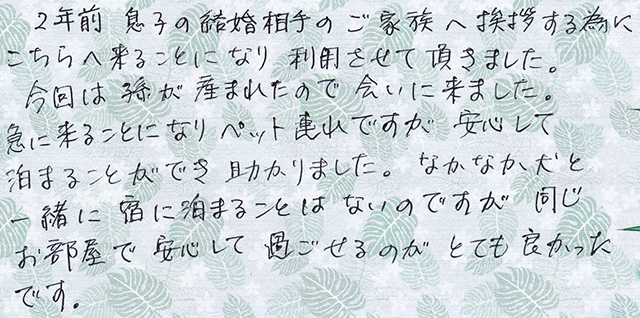 2年前 息子の結婚相手のご家族へ挨拶する為に
こちらへ来ることになり 利用させて頂きました。
今回は孫が産まれたので会いに来ました。
急に来ることになりペット連れですが 安心して
泊まることができ 助かりました。なかなか犬と
一緒に宿に泊まることはないのですが 同じ
お部屋で安心して過ごせるのがとても良かった
です。